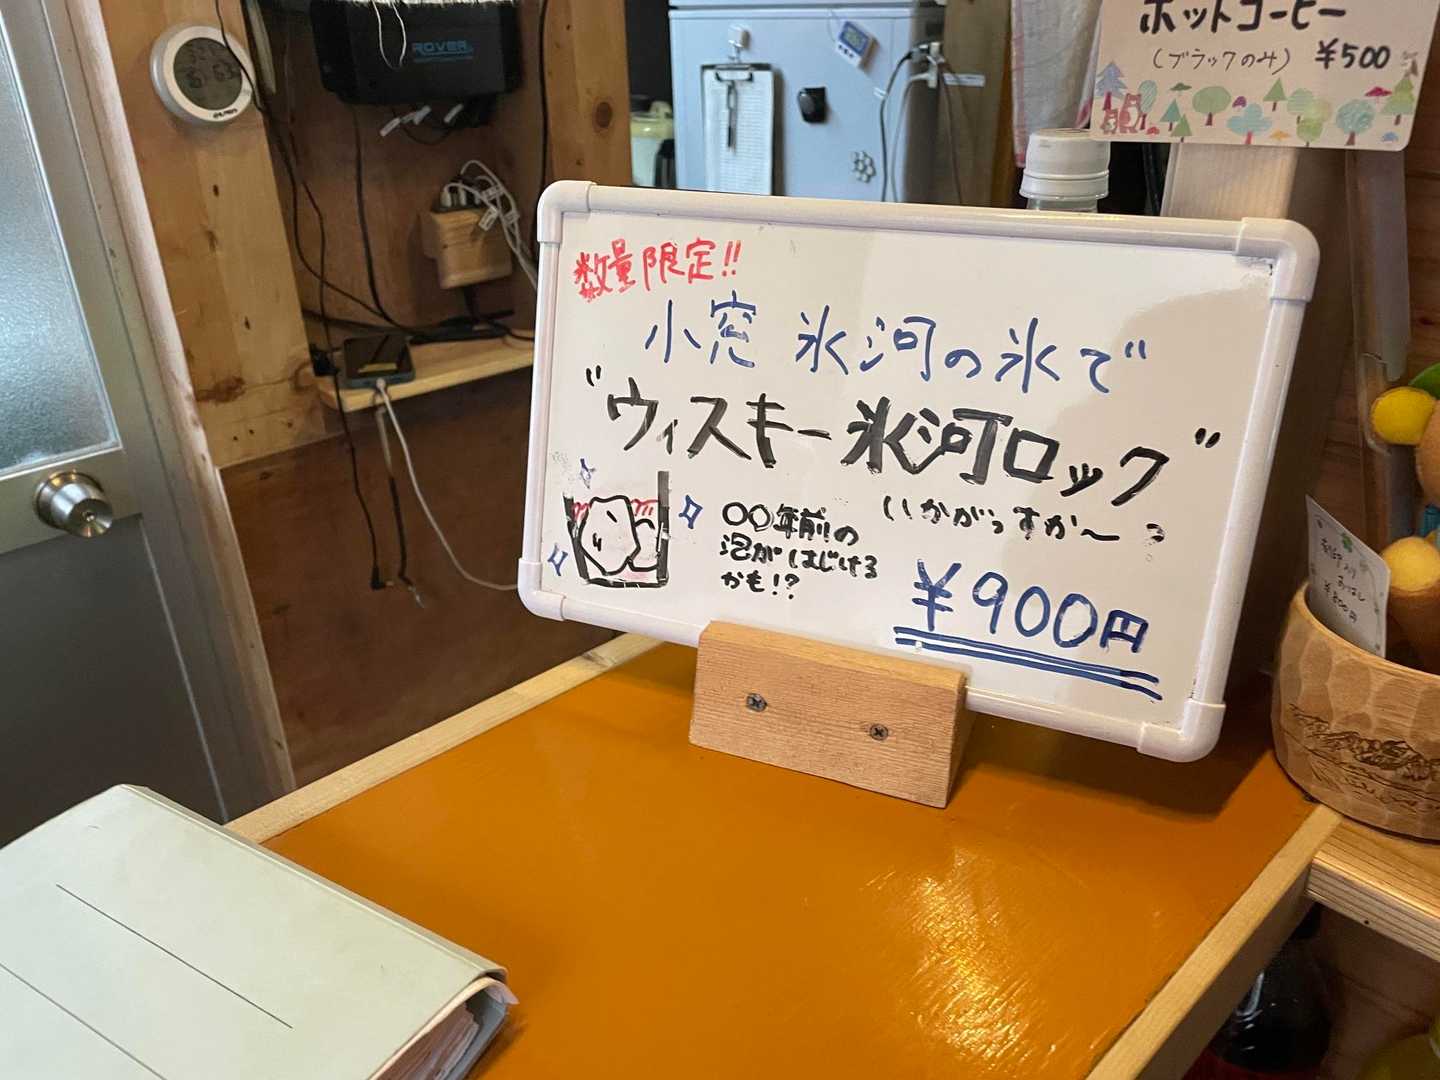 ROVER
ホットコーヒー
(ブラックのみ) ¥500
数量限定!!
小窓 氷河の氷で
"ウィスキー氷河ロック"
いかがっすか〜?
〇〇年前の
泡がはじける
かも!?
¥900円
¥800円